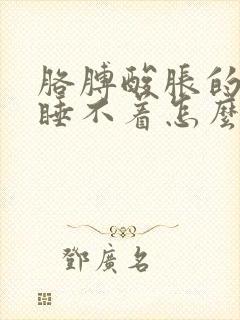 胳膊酸胀的
睡不着怎麼
鄧廣名